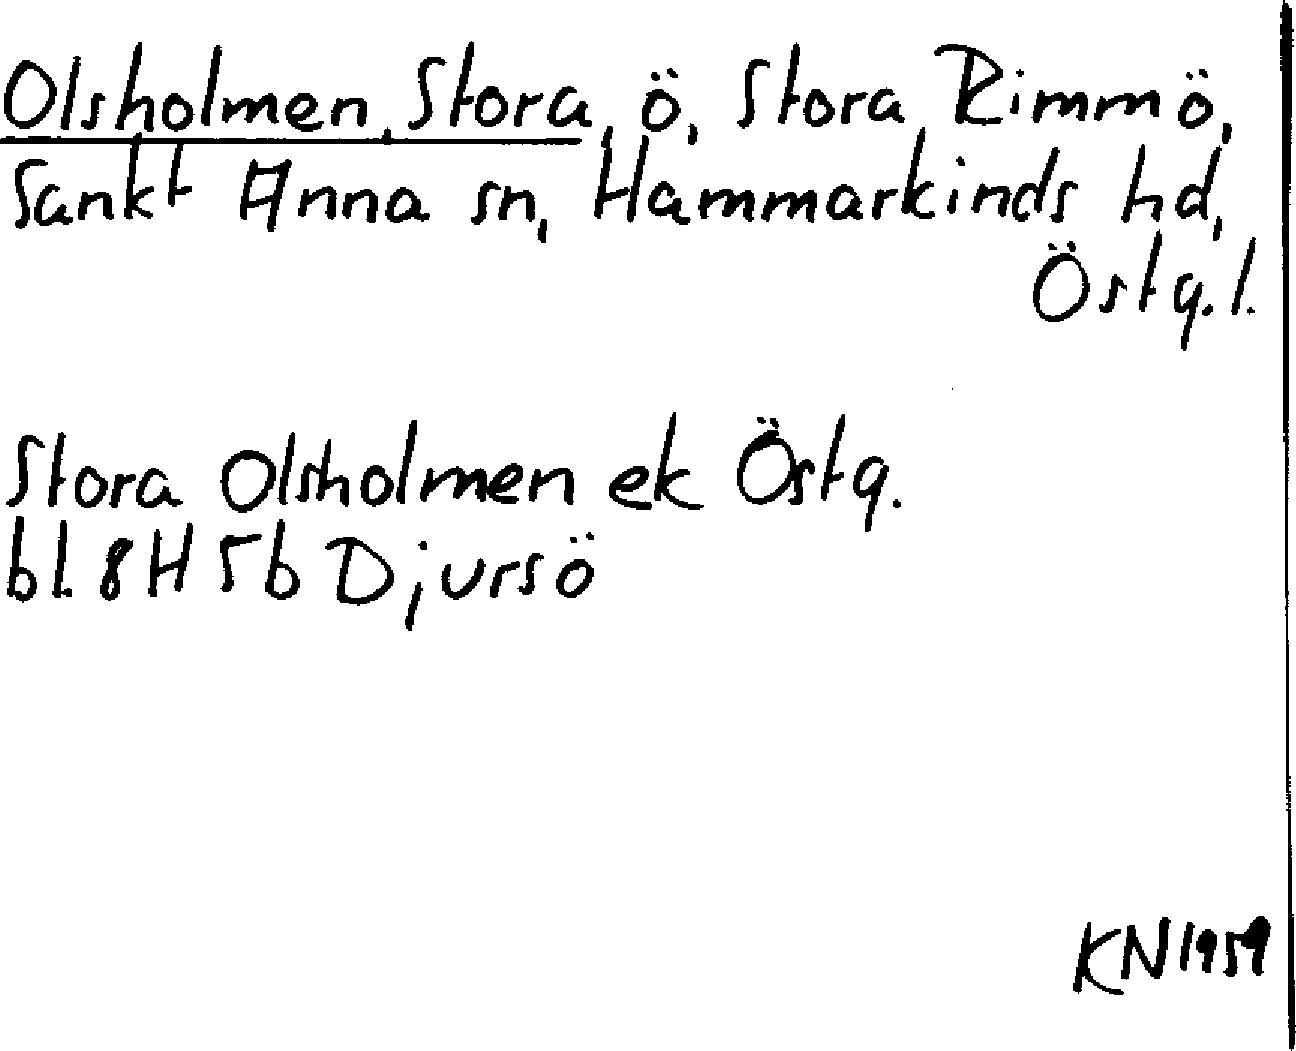 Olsholmen, Stora, ö, Stora Rimmö,
Sankt Anna sn, Hammarkinds hd,
Östg. l.
Stora Olsholmen ek Östg.
bl. 8H 5b Djursö
KN 1959